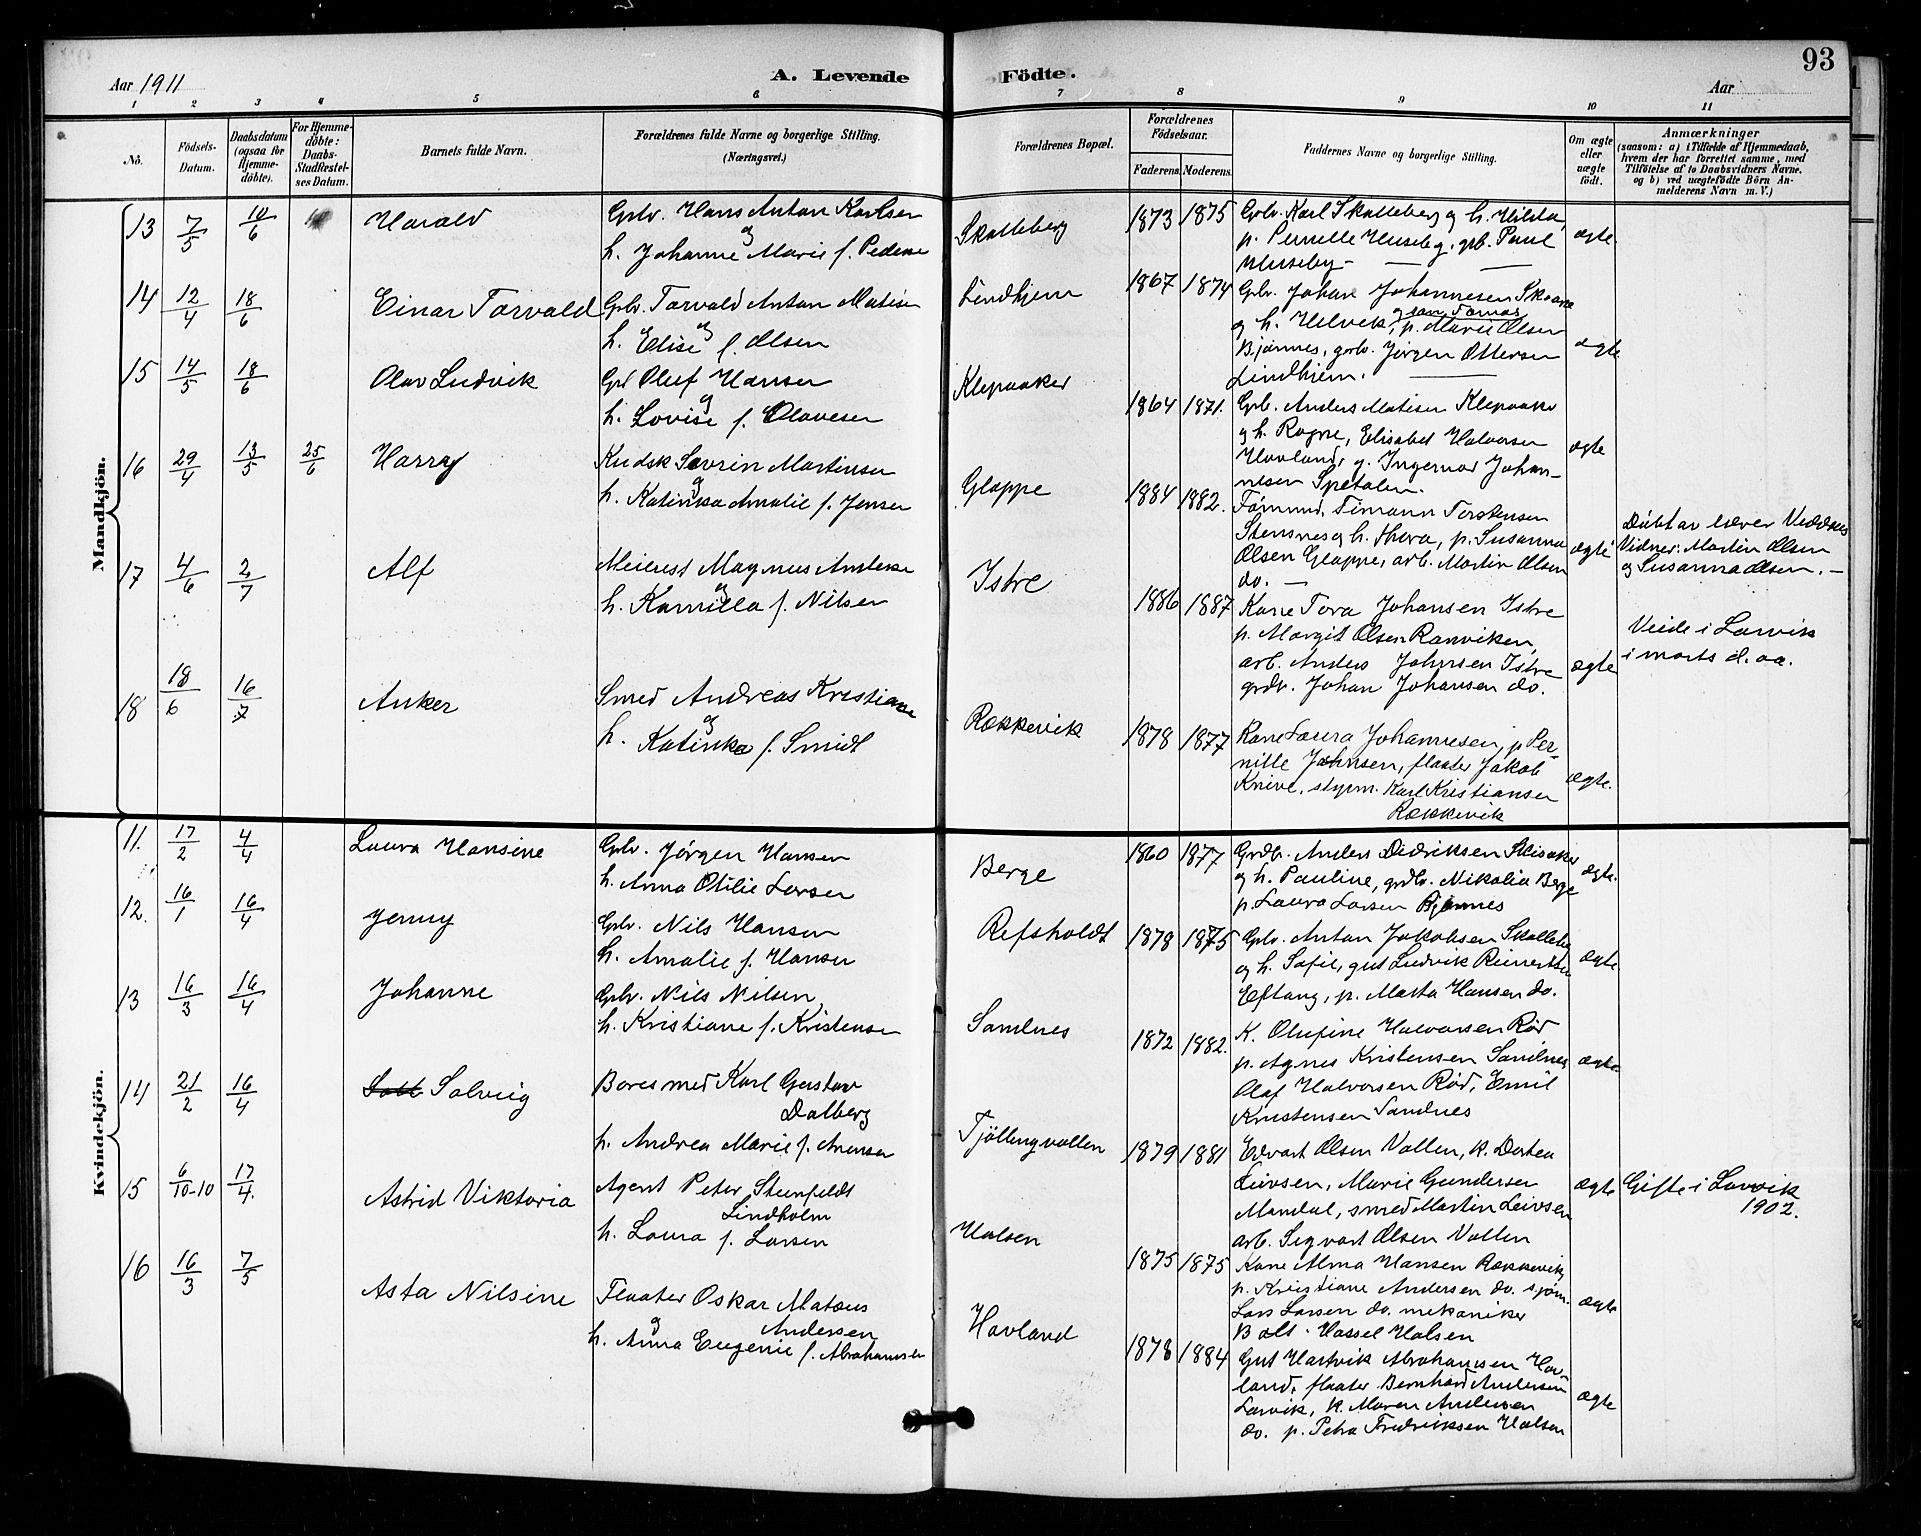 93
Aar 1911
A. Levende Födte.
Aar
1 2 3 4 5 6 7 8 9 10 11
No.
Födsels-Datum.
Daabsdatum (ogsaa for Hjemme-döbte).
For Hjemme-döbte: Daabs-Stadfæstel-ses Datum.
Barnets fulde Navn.
Forældrenes fulde Navne og borgerlige Stilling. (Næringsvei.)
Forældrenes Bopæl.
Forældrenes Födselsaar.
Faderens. Moderens.
Faddernes Navne og borgerlige Stilling.
Om ægte eller uægte födt.
Anmærkninger
(saasom: a) i Tilfælde af Hjemmedaab,
hvem der har forrettet samme, med
Tilföielse af to Daabsvidners Navne.
og b) ved uægtefödte Börn An-
melderens Navn m. V.)
Mandkjön.
13 7/5 10/6 Harald
Grbr. Hans Anton Karlsen
og
h. Johanne Marie f. Peders
Skalleberg 1873 1875
Grbr. Karl Skalleberg og h. Hilda,
p. Pernille Huseby, grb. Paul
Huseby —
ægte.
14 12/4 18/6 Einar Torvald
Grbr. Torvald Anton Matisen
og
h. Elise f. Olsen
Lindhjem 1867 1874
Grbr. Johan Johannesen Skaane
og h. Helvik, p. Marie Olsen
Bjønnes, grbr. Jørgen Ottersen
Lindhjem.
ægte
15 14/5 18/6 Olav Ludvik
Grb Oluf Hansen
og
h. Lovise f. Olavesen
Klepaaker 1864 1871.
Grb. Anders Matisen Klepaaker
og h. Ragne, Elisabet Halvorsen
Hovland, g. Ingemar Johan-
nesen Spetalen.
ægte
16 29/4 13/5 25/6 Harry
Kudsk Sevrin Martinsen
og
h. Katinka Amalie f. Jensen
Gloppe 1884 1882.
Tømmm. Timann Torstensen
Stensnes og h. Thora, p. Susanna
Olsen Gloppe, arb. Martin Olsen
do. —
ægte
Døbt av lærer
Vidner: Martin Olsen
og Susanna Olsen. —
17 4/6 2/7 Alf
Meierist Magnus Anderse
og
h. Kamilla f. Nilsen
Istre 1886 1887
Kone Tora Johansen Istre
p. Margit Olsen Ranviken,
arb. Anders Johnsen Istre
grdbr. Johan Johansen do.
ægte
Viede i Larvik
i marts d. aa.
18 18/6 16/7 Anker
Smed Andreas Kristianse
og
h. Katinka f. Smidt
Rekkevik 1878 1877
Kone Laura Johannesen, p Per-
nille Johnsen, flaater Jakob
Knive, styrm. Karl Kristiansen
Rekkevik
ægte.
Kvindekjön.
11. 17/2 4/4 Laura Hansine
Grbr. Jørgen Hansen
h. Anna Otilie Larsen
Berge 1860 1877
Grdb. Anders Didriksen Skisaker
og h. Pauline, grdbr. Nikolai Berge
p. Laura Larsen Bjønnes
ægte.
12. 16/1 16/4 Jenny
Grbr. Nils Hansen
h. Amalie f. Hansen
Refsholdt 1878 1875
Grbr. Anton Jakobsen Skalleberg
og h. Sofie, gut Ludvik Reinertsen
Eftang, p. Marta Hansen do.
ægte.
13 16/3 16/4 Johanne
Grbr. Nils Nilsen,
h. Kristiane f. Kristensen
Sandnes 1872 1882.
K. Olufine Halvorsen Rød
p. Agnes Kristensen Sandnes
Olaf Halvorsen Rød, Emil
Kristensen Sandnes
ægte
14 21/2 16/4 Solveig
Boresmed Karl Gustav
Dalberg
h. Andrea Marie f. Arensen
Tjøllingvollen 1879 1881
Edvart Olsen Vollen, k. Dortea
Leivsen, Marie Gundersen
Mandal, smed Martin Leivsen
arb. Sigvart Olsen Vollen
ægte
Gifte i Larvik
1902.
15 6/10-10 17/4. Astrid Viktoria
Agent Peter Steenfeldt
Lindholm
h. Laura f. Larsen
Halsen 1875 1875
Kone Alma Hansen Rekkevik
p. Kristiane Andersen do. sjøm.
Lars Larsen do. mekaniker
Balt. Hassel Halsen
ægte
16 16/3 7/5 Asta Nilsine
Flaater Oskar Mateus
og Andersen
h. Anna Eugenie f. Abrahamsen
Hovland 1878 1884
Gut Hartvik Abrahamsen Hov-
land, flaater Bernhard Andersen
Larvik, k. Maren Andersen
do. p. Petra Fredriksen Halsen
ægte